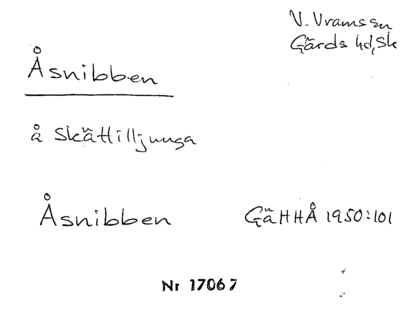 V. Vrams sn
Gärds hd, Sk
Åsnibben
å Skättilljunga
Åsnibben GäHHÅ 1950:101
Nr 17067